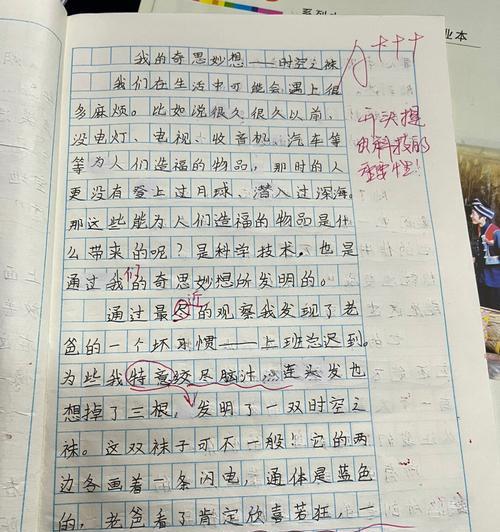 系列
业本
我的奇思妙想——时空之袜
A++++
我们在生活中可能会遇上很
多麻烦。比如说很久很久以前,
开头提
没电灯、电视、收音机、汽车等
出科技的
等为人们造福的物品,那时的人
重要性!
更没有登上过月球、潜入过深海。
那这些能为人们造福的物品是什
么带来的呢?是科学技术,也是
通过我们的奇思妙想所发明的。
通过最尽近的观察我发现了老
爸的一个坏习惯——上班总迟到。
为些我特意绞尽脑汁,连头发也
想掉了三根,发明了一双时空之
袜。这双袜子可不一般!它的两
边各画着一条闪电,通体是蓝色
的,老爸看了肯定欣喜若狂,一